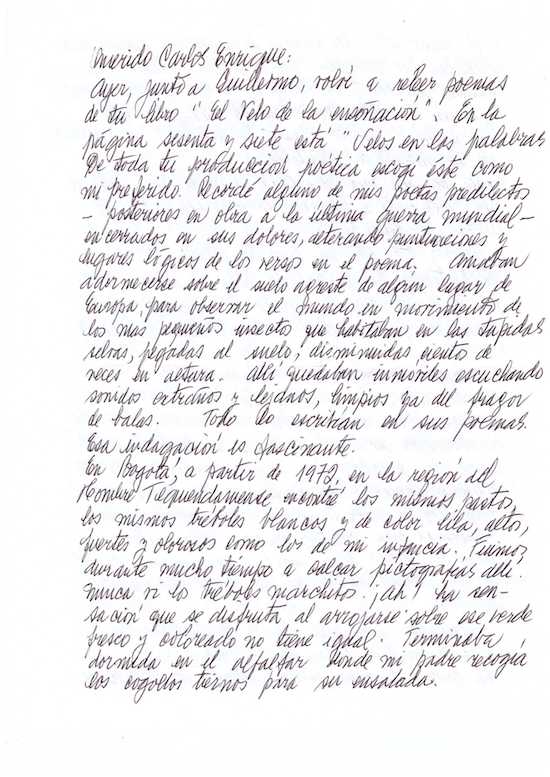 Querido Carlos Enrique:
Ayer, junto a Guillermo, volví a releer poemas
de tu libro "El Velo de la ensoñación". En la
página sesenta y siete está "Velos en las palabras
De toda tu producción poética escogí éste como
mi preferido. Recordé alguno de mis poetas predilectos
– posteriores en obra a la última guerra mundial –
encerrados en sus dolores, alterando puntuaciones y
lugares lógicos de los versos en el poema. Amaban
adormecerse sobre el suelo agreste de algún lugar de
Europa, para observar el mundo en movimiento de
los más pequeños insectos que habitaban en las tupidas
selvas, pegadas al suelo; disminuidas ciento de
veces en altura. Allí quedaban inmóviles escuchando
sonidos extraños y lejanos, limpios ya del fragor
de balas. Todo lo escribían en sus poemas.
Esa indagación es fascinante.
En Bogotá, a partir de 1972, en la región del
Hombre Tequendamense encontré los mismos pastos,
los mismos tréboles blancos y de color lila, altos,
fuertes y olorosos como los de mi infancia. Fuimos
durante mucho tiempo a calcar pictografías allí.
Nunca vi los tréboles marchitos. ¡Ah! la sen-
sación que se disfruta al arrojarse sobre ese verde
fresco y coloreado no tiene igual. Terminaba
dormida en el alfalfar donde mi padre recogía
los cogollos tiernos para su ensalada.